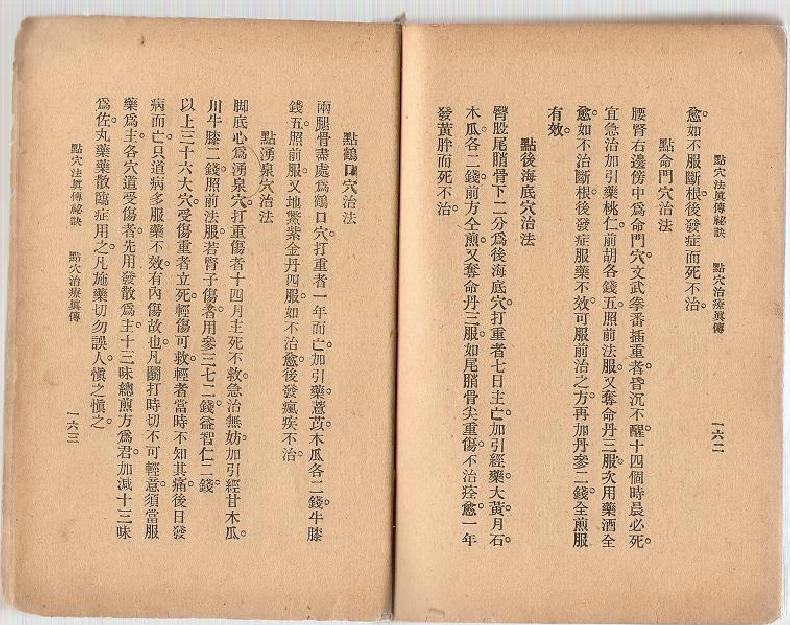 點穴法眞傳秘訣　點穴治療眞傳　一六二
愈。如不服斷根。後發症而死不治。
點命門穴治法
腰腎右邊傍中爲命門穴。文武拳番插重者昏沉不醒。十四個時晨必死。
宜急治加引藥桃仁。前胡各錢五。照前法服。又奪命丹三服。次用藥酒全
愈。如不治斷根。後發症服藥不效。可服前治之方。再加丹參二錢。全煎服
有效。
點後海底穴治法
臀股尾脊骨下二分爲後海底穴。打重者七日主亡。加引經藥。大黃。月石。
木瓜。各二錢。前方仝煎。又奪命丹三服。如尾脊骨尖重傷。不治痊愈。一年
發黃胖而死不治。
點鶴口穴治法
兩腿骨盡處爲鶴口穴。打重者一年而亡。加引藥。薏苡。木瓜各二錢。牛膝
錢五。照前服。又地鱉紫金丹四服。如不治愈。後發瘋疾不治。
點湧泉穴治法
脚底心爲湧泉穴。打重傷者十四月主死不救。急治無妨。加引經甘木瓜。
川牛膝二錢。照前法服。若腎子傷者。用參三七二錢。益智仁二錢。
以上三十六大穴。受傷重者立死。輕傷可救。輕者當時不知其痛。後日發
病而亡。只道病多服藥不效。有內傷故也。凡鬭打時切不可輕意。須當服
藥爲主。各穴道受傷者。先用發散爲主。十三味總煎方爲君。加減十三味
爲佐。丸藥藥散臨症用之。凡施藥切勿誤人。愼之愼之。
點穴法眞傳秘訣　點穴治療眞傳　一六三